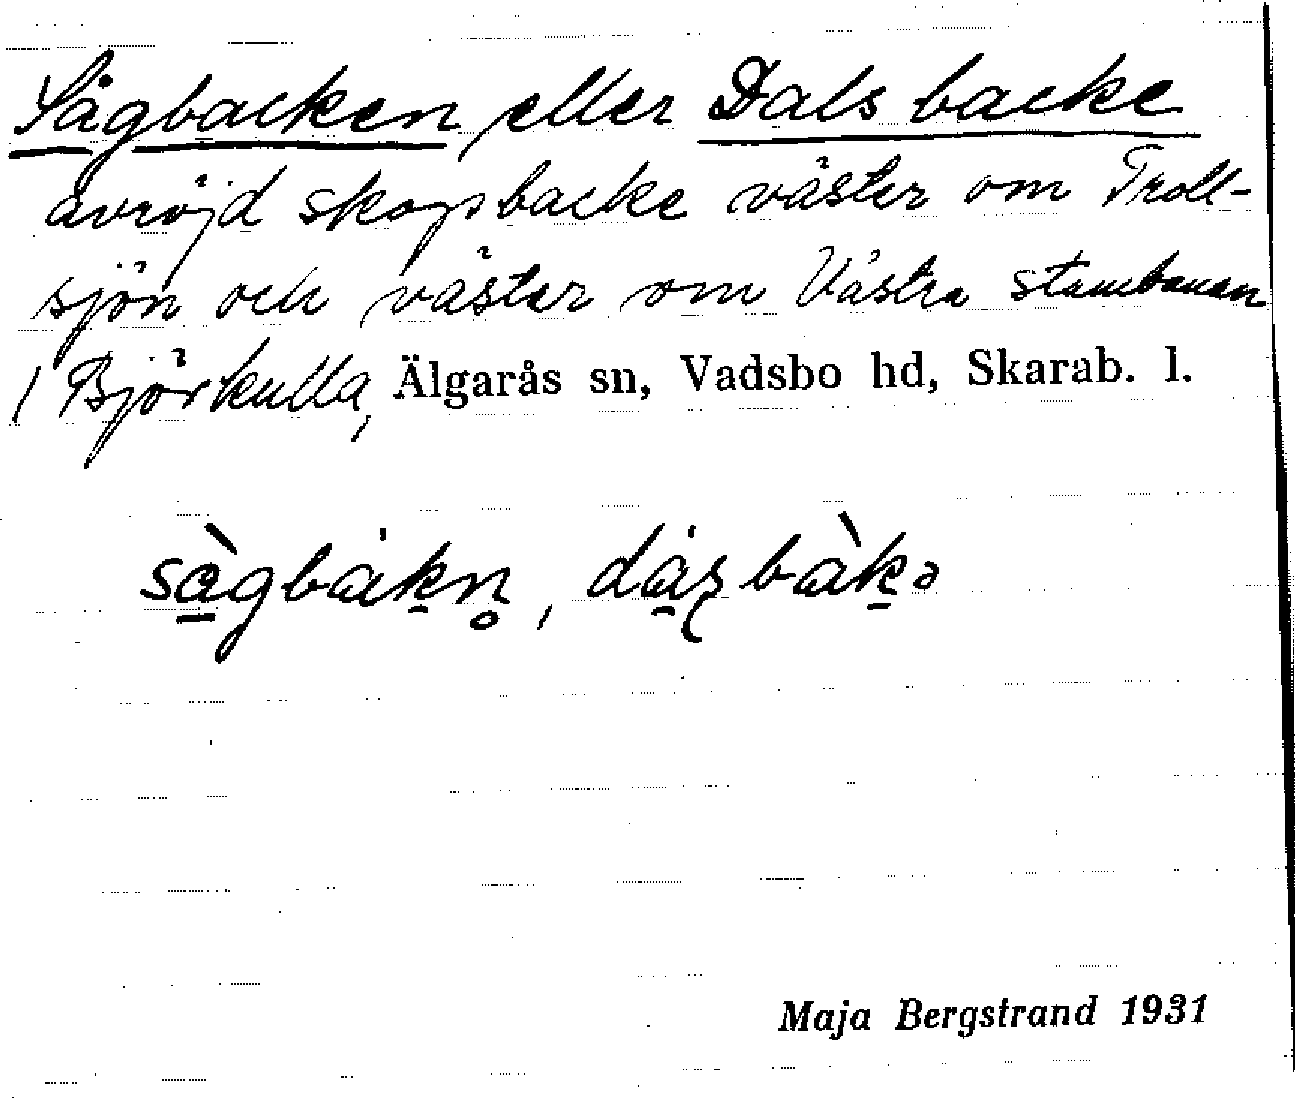 Sågbacken eller Dalsbacke
avröjd skogsbacke väster om Troll-
sjön och väster om Västra stambanan
i Björkulla, Älgarås sn, Vadsbo hd, Skarab. l.
Maja Bergstrand 1931